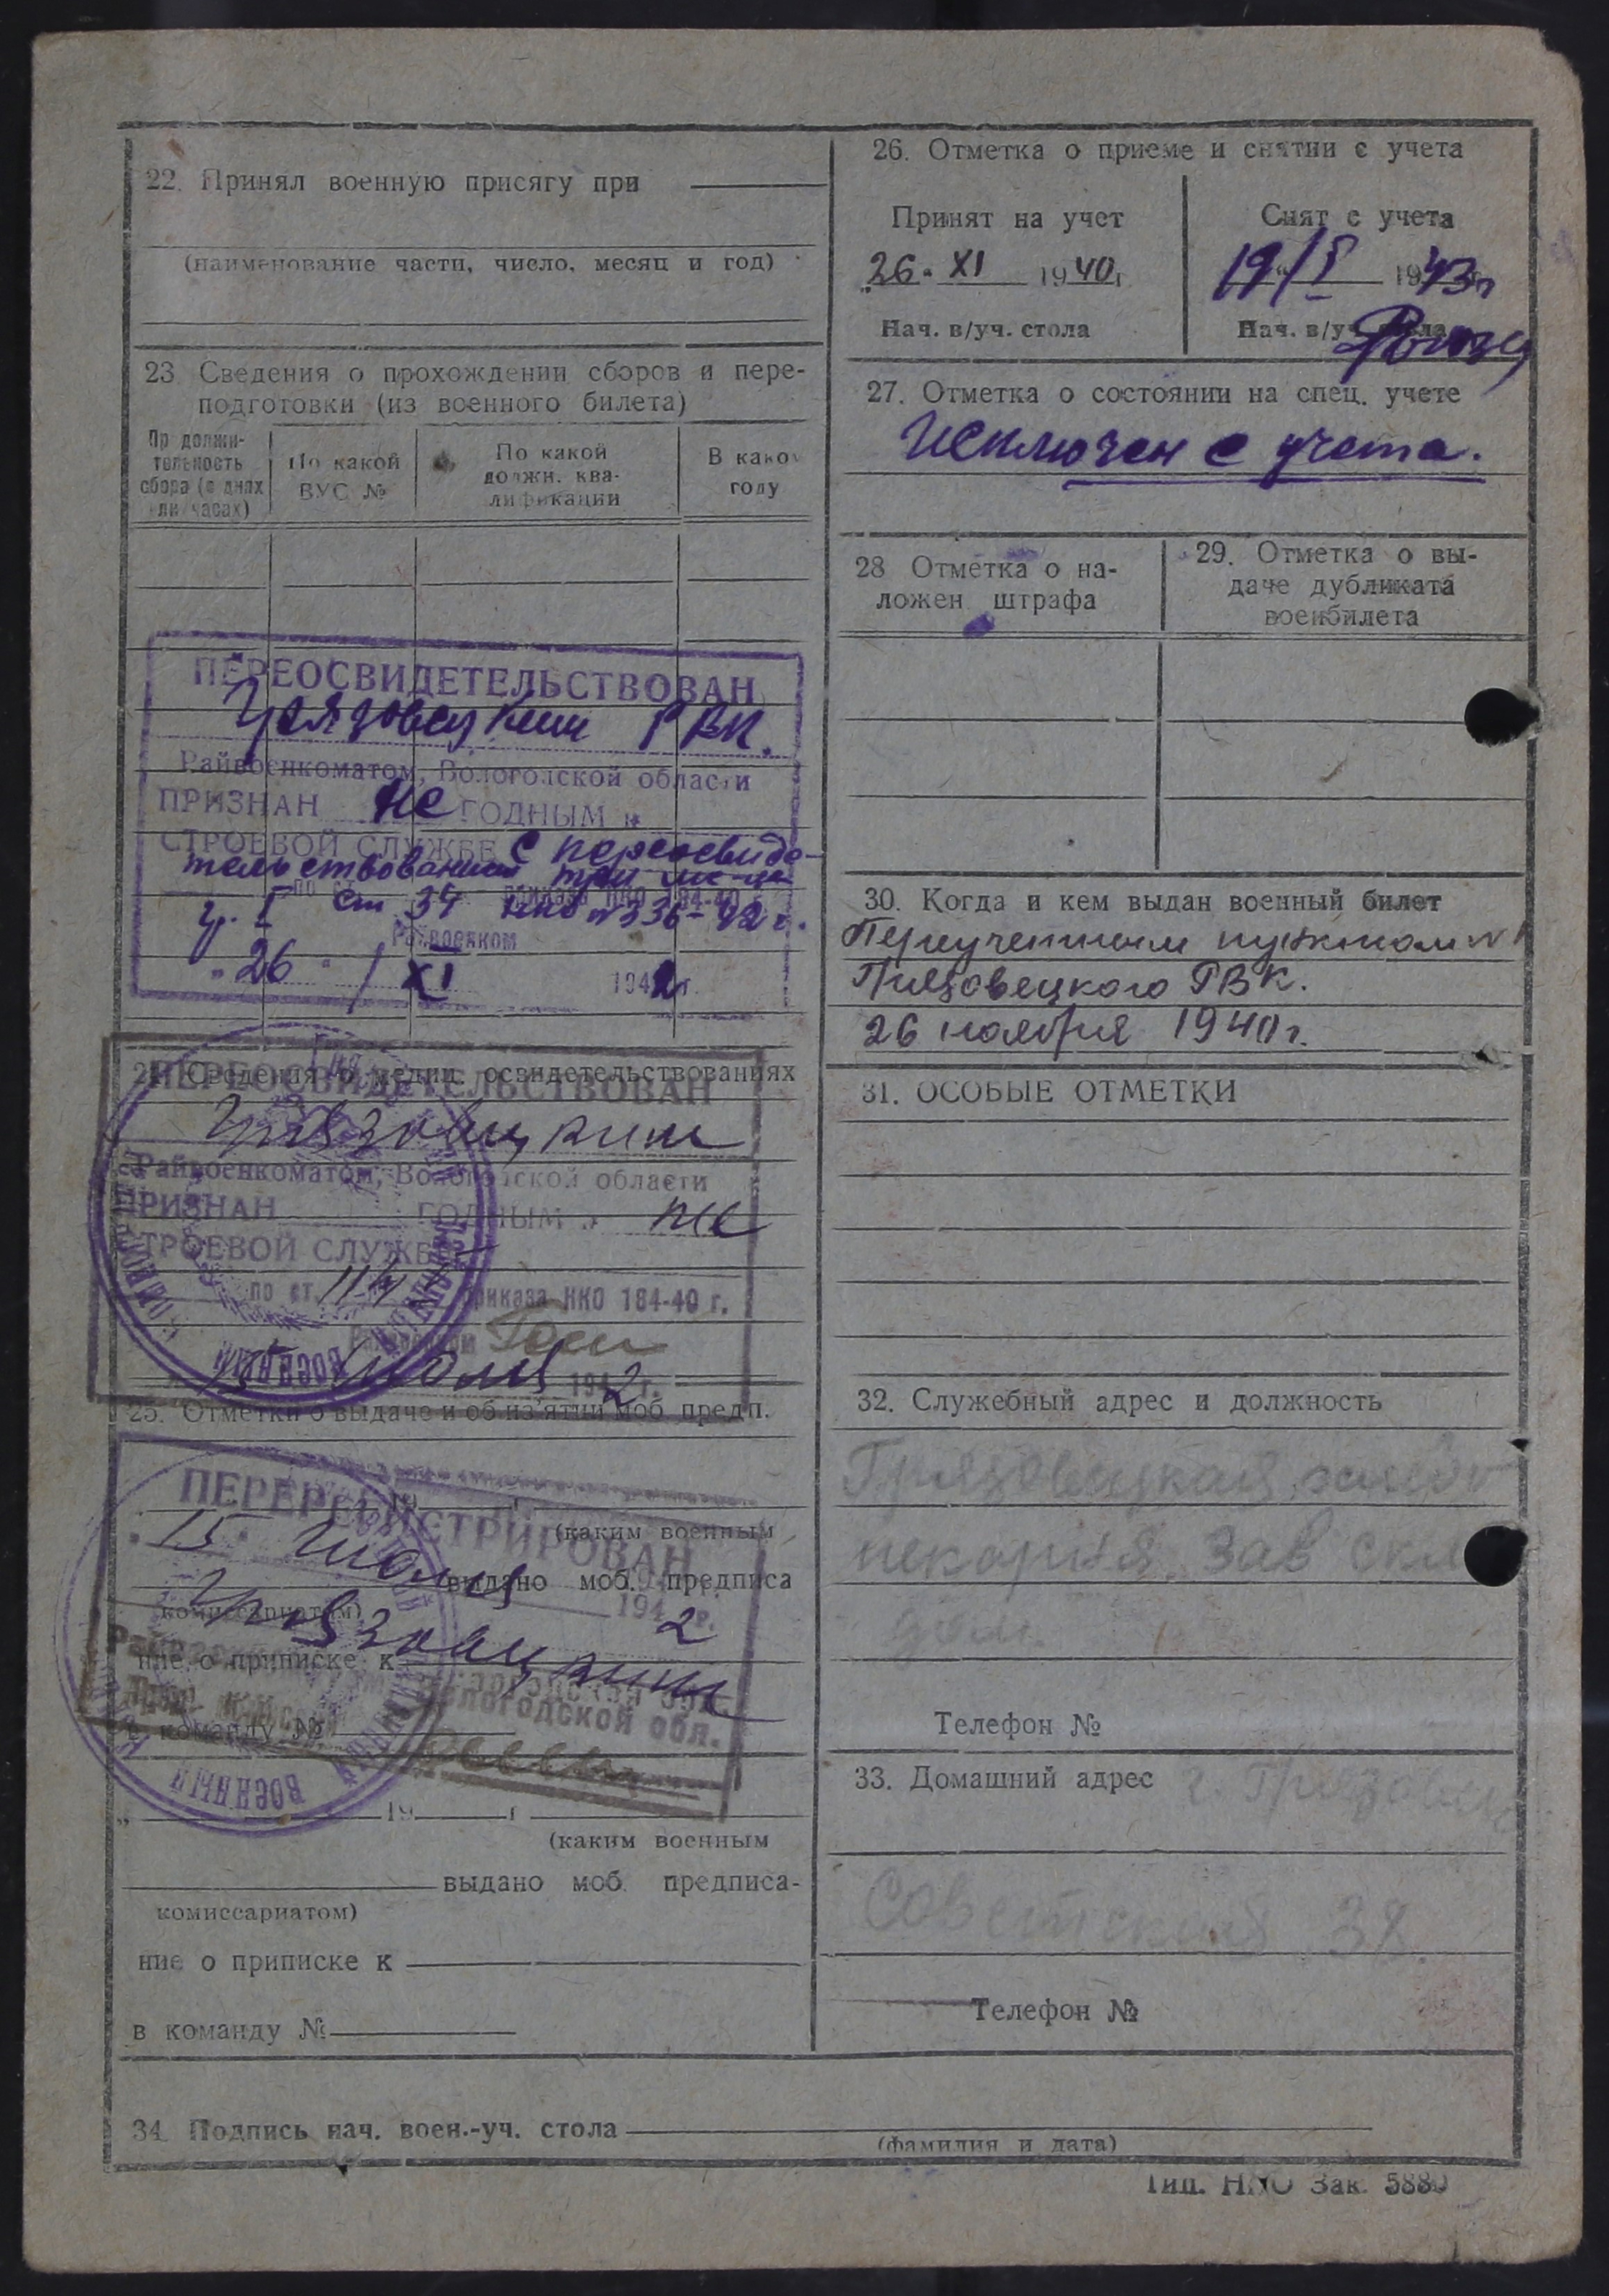 22. Принял военную присягу при
(наименование части, число, месяц и год)
23 Сведения о прохождении сборов и пере-
подготовки (из военного билета)
Пр должи-
тельность
сбора (в днях
ли часах)
По какой
ВУС №
По какой
должн. ква-
лификации
В како
году
ПЕРЕОСВИДЕТЕЛЬСТВОВАН
Грязовецким РВК.
Райвоенкоматом, Вологодской области
ПРИЗНАН не ГОДНЫМ к
СТРОЕВОЙ СЛУЖБЕ с переосвиде-
тельствованием три
гр. I ст 34 НКО № 336-42 г.
Райвоенком
26 / XI 1942 г.
24. Сведения о медиц. освидетельствованиях
ПЕРЕОСВИДЕТЕЛЬСТВОВАН
Грязовецким
Райвоенкоматом, Вологодской области
ПРИЗНАН ГОДНЫМ к не
СТРОЕВОЙ СЛУЖБЕ
по ст. приказа НКО 184-40 г.
15 июля 1942 г.
25. Отметки о выдаче и об из'ятии моб предп.
ПЕРЕРЕГИСТРИРОВАН
(каким военным
15 июля
выдано моб. предписа
комиссариатом)
1942 г.
Грязовецким
ние о приписке к
Вологодской обл.
в команду №
ВОЕННЫЙ
„ 19 г
(каким военным
выдано моб. предписа-
комиссариатом)
ние о приписке к
в команду №
26. Отметка о приеме и снятии с учета
Принят на учет
„26. XI 1940 г
Нач. в/уч. стола
Снят с учета
19/I 1943 г
Нач. в/уч. стола
27. Отметка о состоянии на спец. учете
Исключен с учета.
28 Отметка о на-
ложен штрафа
29. Отметка о вы-
даче дубликата
военбилета
30. Когда и кем выдан военный билет
Переучетным пунктом № 1
Грязовецкого РВК.
26 ноября 1940 г.
31. ОСОБЫЕ ОТМЕТКИ
32. Служебный адрес и должность
Грязовецкая хлебо
пекарня. Зав скл
дом.
Телефон №
33. Домашний адрес г. Грязовец
Советская 38.
Телефон №
34. Подпись нач. воен.-уч. стола
(фамилия и дата)
Тип. НКО Зак. 5880